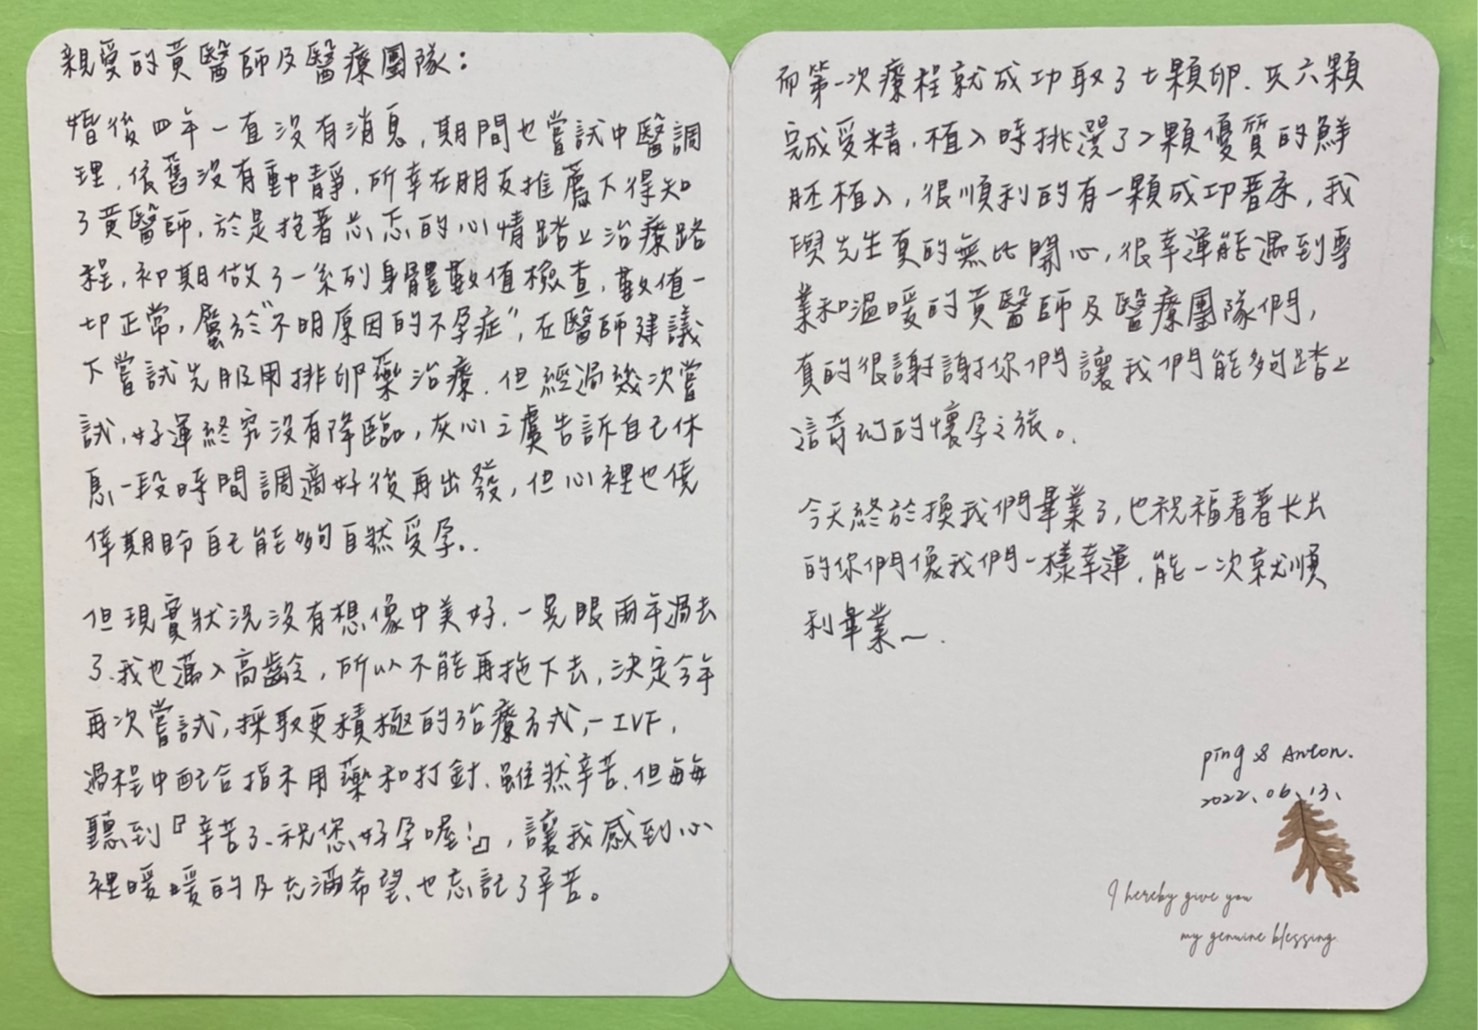 親愛的黃醫師及醫療團隊：
婚後四年一直沒有消息，期間也嘗試中醫調
理，依舊沒有動靜，所幸在朋友推薦下得知
了黃醫師，於是抱著忐忑的心情踏上治療路
程，初期做了一系列身體數值檢查，數值一
切正常，屬於"不明原因的不孕症"，在醫師建議
下嘗試先服用排卵藥治療，但經過幾次嘗
試，好運終究沒有降臨，灰心之虞告訴自己休
息一段時間調適好後再出發，但心裡也僥
倖期盼自己能夠自然受孕..
但現實狀況沒有想像中美好，一晃眼兩年過去
了、我也邁入高齡，所以不能再拖下去，決定今年
再次嘗試，採取更積極的治療方式，-IVF，
過程中配合指示用藥和打針、雖然辛苦、但每每
聽到『辛苦了、祝您好孕喔！』，讓我感到心
裡暖暖的及充滿希望、也忘記了辛苦。
而第一次療程就成功取了七顆卵、共六顆
完成受精，植入時挑選了2顆優質的鮮
胚植入，很順利的有一顆成功著床，我
與先生真的無比開心，很幸運能遇到專
業和溫暖的黃醫師及醫療團隊們，
真的很謝謝你們讓我們能夠踏上
這奇幻的懷孕之旅。.
今天終於換我們畢業了，也祝福看著卡片
的你們像我們一樣幸運，能一次就順
利畢業～.
Ping & Anton.
2022、06、13、
I hereby give you
my genuine blessing